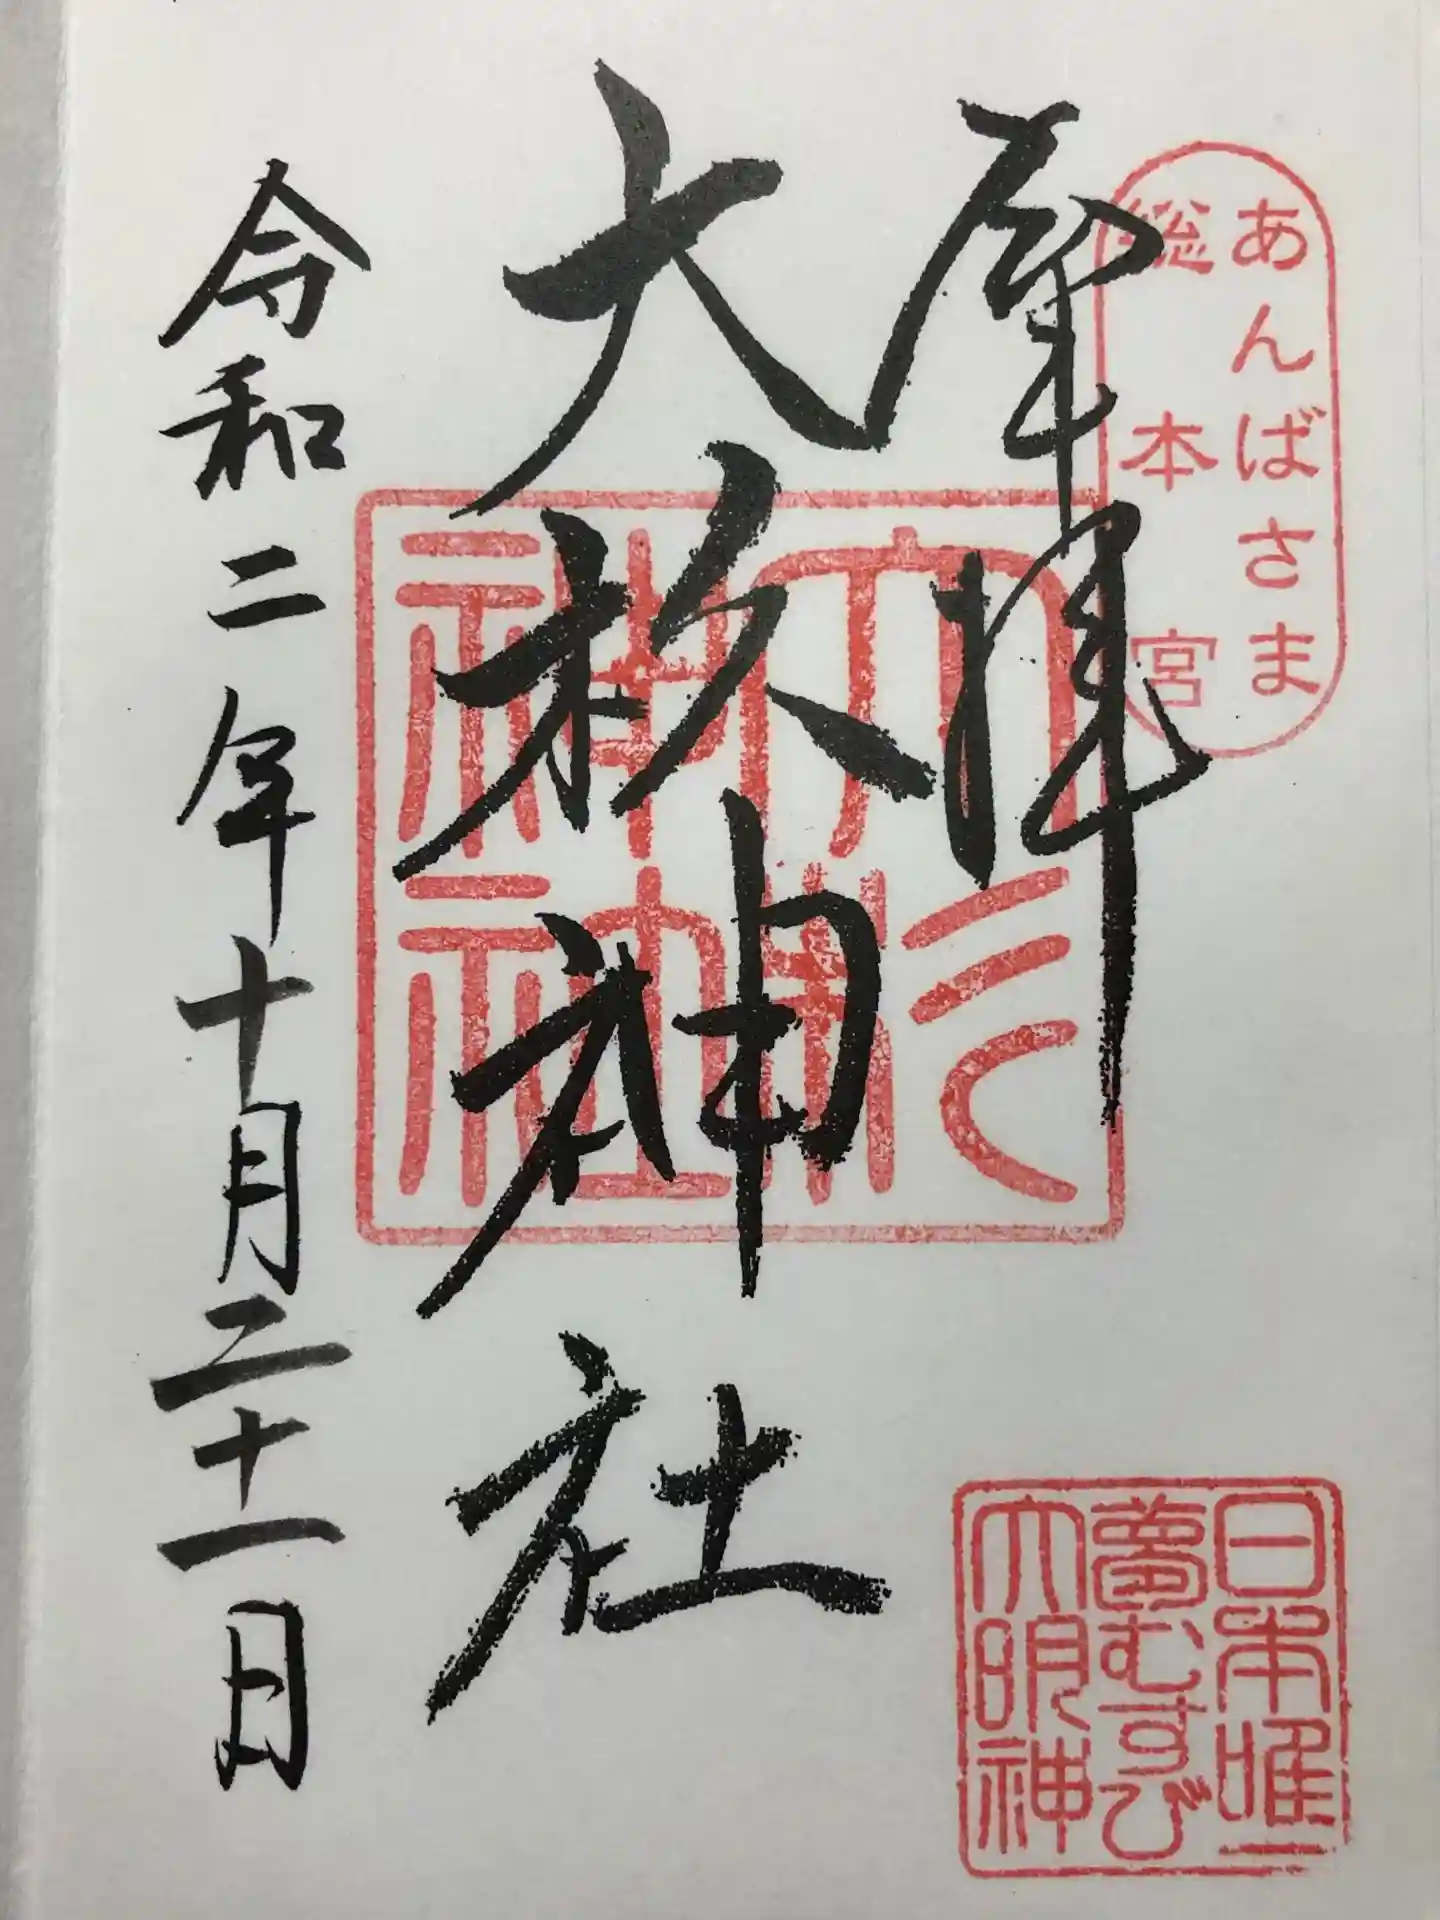 あんばさま
総本宮
拝
大杦神社
大杉
神社
令和二年十月二十一日
日本唯一
夢むすび
大明神